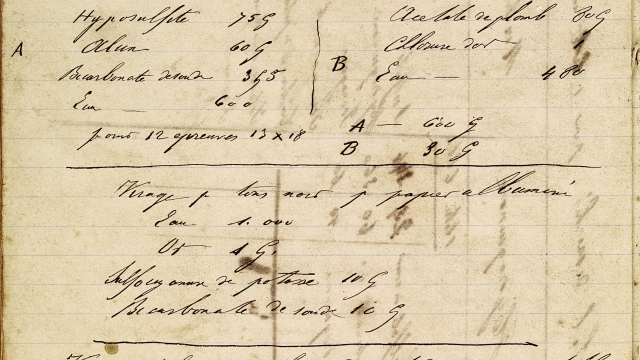 A
Hyposulfite 75 G
Alun 60 G
Bicarbonate de soude 3 G 5
Eau — 600
B
Acetate de plomb 80 G
Chlorure d'or 1
Eau — 480
pour 12 epreuves 13 x 18
A — 600 G
B 30 G
Virage p tons noir p papier albuminé
Eau 1.000
Or 1 G.
Sulfocyanure de potasse 10 G
Bicarbonate de soude 10 G